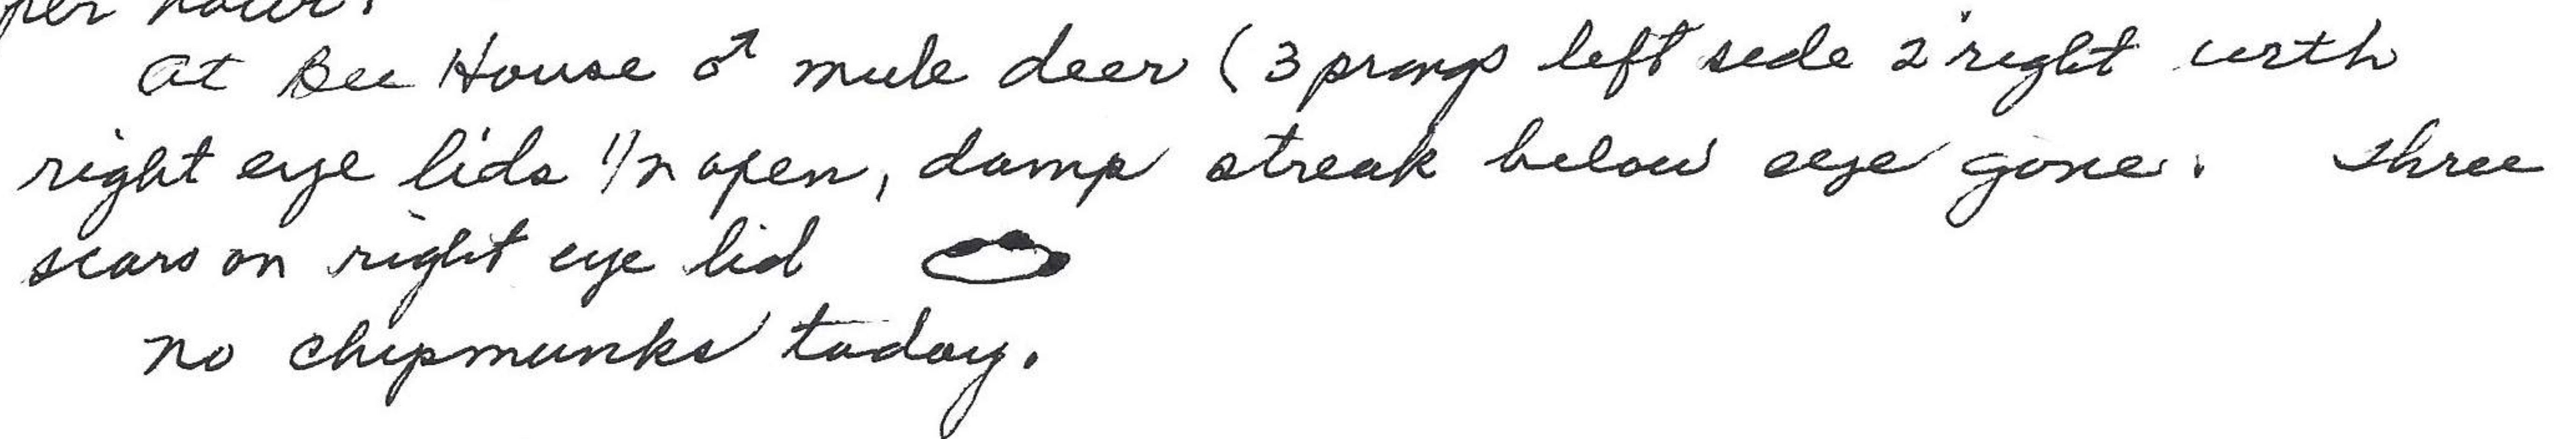 per hour.
At Bee House ♂ mule deer (3 prongs left side 2 right with
right eye lids 1/2 open, damp streak below eye gone. Three
scars on right eye lid
no chipmunks today.